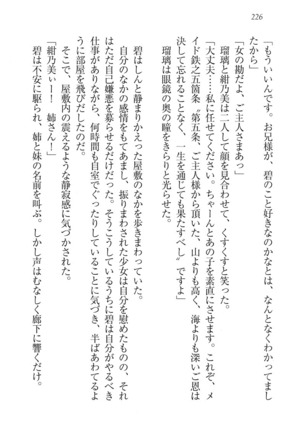 226
「もういいんです。お兄様が、碧のこと好きなのかなとは、なんとなくわかってまし
たから」
「女の勘だよ、ご主人さまあっ」
瑠璃と紺乃美は二人して顔を見合わせて、くすくすと笑う。
「大丈夫……私に任せてください。ちゃーんとあの子を素直にさせます。これぞ、メ
イド鉄之五箇条『第五条、ご主人様から頂いた、山よりも高く、海よりも深いご恩は
決して忘れることなく、一生を通じても果たすべし』ですよ」
瑠璃は眼鏡の奥の瞳をきらりと光らせた。
碧はしんと静まりかえった屋敷のなかを歩きまわっていた。
自分のなかの感情をもてあまし、振りまわされた少女は自分を慰めたものの、それ
はただ自己嫌悪を募らせるだけだった。そうこうしているうちに碧は自分がやるべき
仕事がありながら、何時間も自室でぐったりしていることに気づき、半ばあわてるよ
うに部屋を飛びだしたのだ。
そこで、屋敷内の震えるような静寂感に気づかされた。
「紺乃美ぃ！　姉さん！」
碧は不安に駆られ、姉と妹の名前を叫ぶ。しかし声はむなしく廊下に響くだけ。